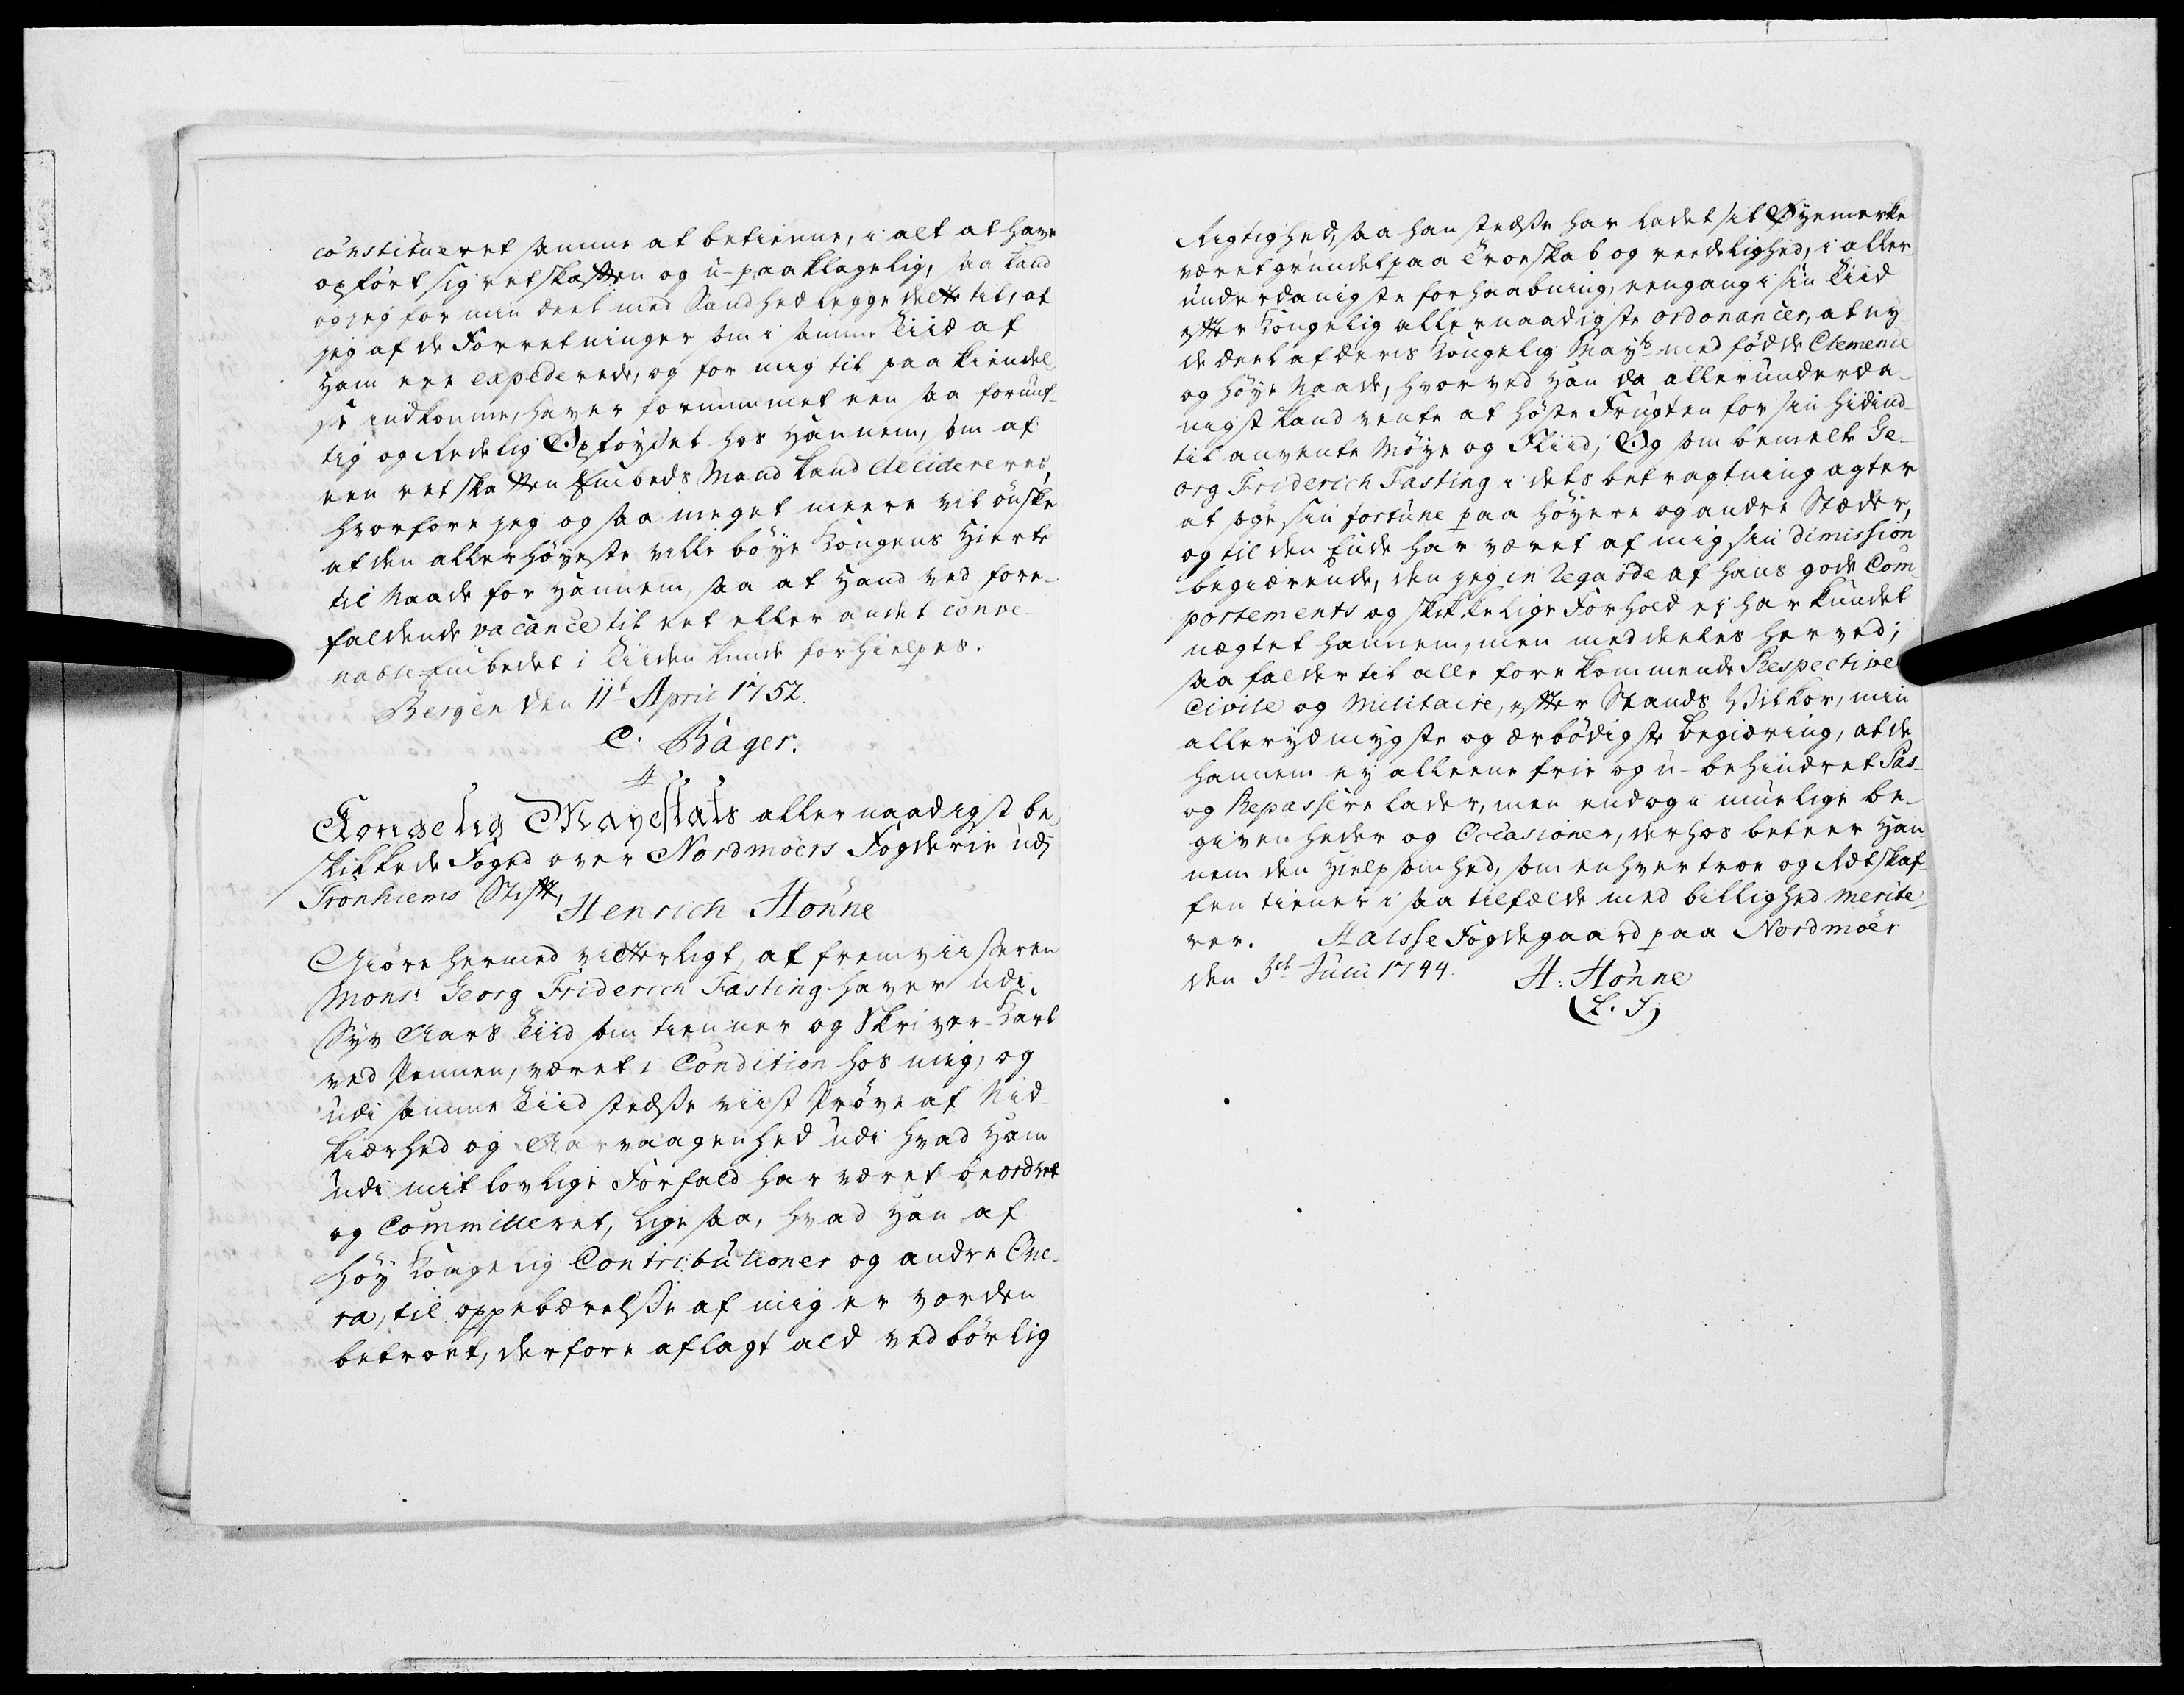 constitueret samme at betienne, i alt at have
opført sig retskaffen og u-paaklagelig, saa kand
og jeg for min deel med Sandhed legge dette til, at
jeg af de Forretninger som i samme Tiid af
ham ere expederede, og for mig til paakiendel-
se indkomne, haver fornummet een saa fornuf-
tig og Redelig Opføysel hos hannem, som af
een retskaffen Embeds Mand kand decidereres,
hvorfore jeg og saa meget meere vil ønske
at den allerhøyeste ville bøye Kongens Hierte
til Naade for hannem, saa at hand ved fore-
faldende vacance til eet eller andet conve-
nable Embedet i Tiiden kunde forhielpes.
Bergen den 11t April 1752.
C. Bager.
4.
Kongelig Mayestats allernaadigst be-
skikkede Foged over Nordmöers Fogderie udi
Tronhiems Stift,
Henrich Hönne
Giöre hermed vitterligt, at fremviiseren
Monsr Georg Friderich Fasting haver udi
Syv Aars Tiid som tienner og Skriver-Karl
ved Pennen, været i Condition hos mig, og
udi samme Tiid stedse viist Prøve af Nid-
kiærhed og Aarvaagenhed udi hvad ham
udi mit lovlige Forfald har været beordret
og Committeret, ligesaa, hvad han af
høy Kongelig Contributioner og andre One-
ra, til oppebærelse af mig er vorden
betroet, derfore aflagt ald vedbørlig
Rigtighed, saa han stedse har ladet sit Øyemerke
været grundet paa Troeskab og reedelighed, i aller-
underdanigste forhaabning, eengang i sin Tiid
efter Kongelig allernaadigste ordonancer, at ny-
de deel af deris Kongelig Mayts medfødde Clemence
og høye Naade, hvorved han da allerunderda-
nigst kand vente at høste Frugten for sin hidind-
til anvente Møye og Fliid; Og som bemelte Ge-
org Friderich Fasting i dets betragtning agter
at søge sin fortune paa høyere og andre Stæder,
og til den Ende har været af mig sin dimission
begiærende, den jeg en regarde af hans gode Com
portements og skikkelige Forhold ej har kundet
nægtet hannem, men meddeeles herved;
saa falder til alle forekommende Respective
Civile og Militaire, efter Stands Vilkor, min
allerydmygste og ærbødigste begiæring, at de
hannem ey alleene frie og u-behindret Pas-
og Repassere lader, men endog i muelige be-
givenheder og Occasioner, derhos beteer han
nem den hielpsomhed, som enhver troe og Retskaf-
fen tiener i saa tilfælde med billighed merite-
rer.
Halsse Fogdegaard paa Nordmöer
den 3de Juni 1744.
H: Hönne
(L. S)